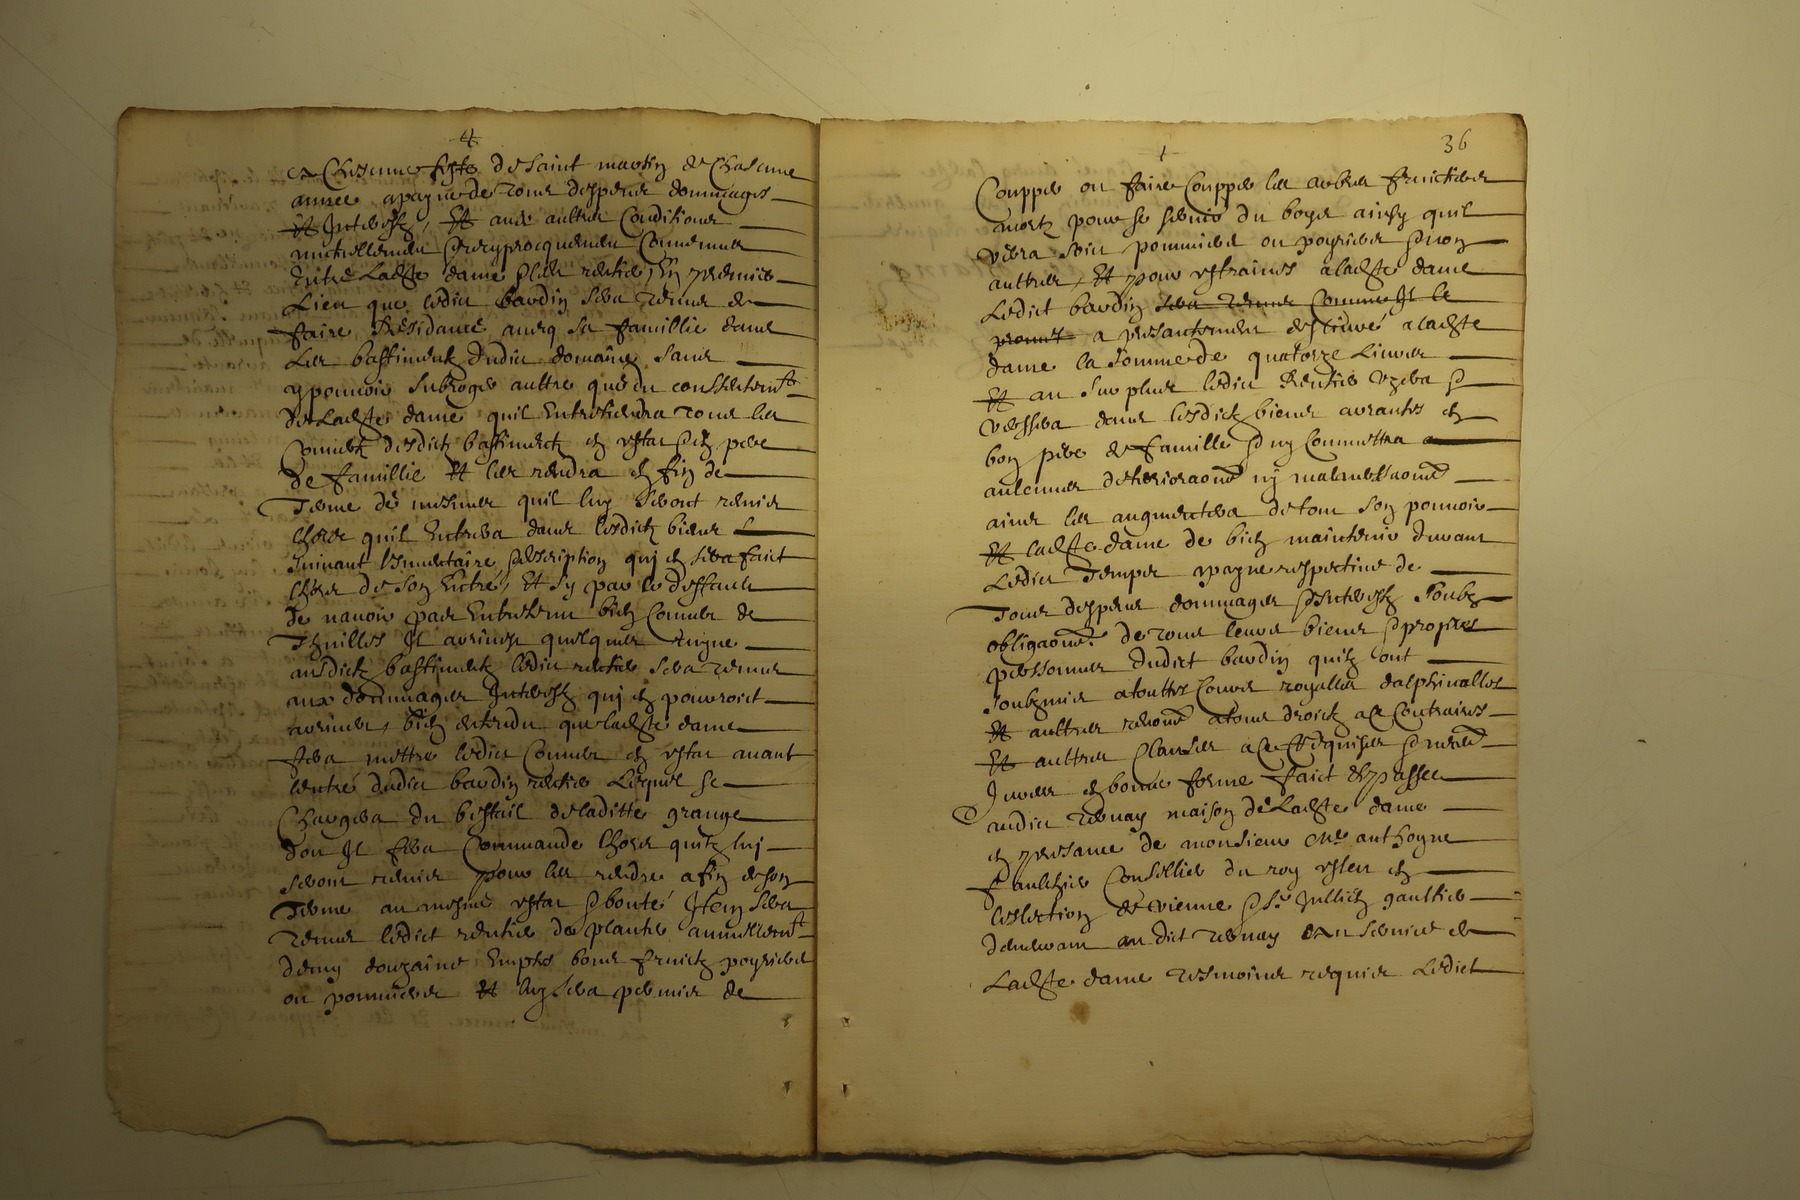 4
a Chescune feste de Saint martin de Chascune
annee apayne de tous despens dommages
Et Interestz, Et aux aultres Conditions
mutuellement Convenues
Entre Ladte dame & led rentier, En premier
Lieu que ledict bardin sera tenu de
faire Residance aveq sa famillie dans
Les bastiments dudict domaine sans
y pouvoir subroger aultre que du consentemt
de Ladte dame quil Entretiendra tous les
Couverts desdictz bastiments en estat de pere
de famillie Et les rendra en fin de
Terme de mesmes quil luy seront remis
Lhors quil Entrera dans lesdictz biens
suivant linventaire & description qui en sera faict
Lhors de son Entré, Et sy par le deffault
de navoir pas Entretenu bien Couvert de
Thuilles Il arrivoit quelques ruyne
ausdictz bastiments ledict rentier sera tenu
aux dommages Interestz qui en pourroit
arriver, bien entendu que ladte dame
fera mettre ledict Couvert en estat avant
lentré dudict bardin rentier Lequel se
Chargera du bestail de laditte grange
dont Il fera Commande Lhors quilz luy
seront remis pour les rendre a fin de son
Terme au mesme estat & bonté Item sera
Tenu ledict rentier de planter annuellemt
demy douzaine Emptes bons fruictz poyriers
ou pommiers Et luy sera permis de
36
Coupper ou faire Coupper les arbres fruictiers
mortz pour se servir du boys ainsy quil
verra soit pommiers ou poyriers & non
aultres, Et pour estraines a ladte dame
Ledict bardin sera tenu Comme Il le
promet a presantement deslivré a ladte
dame la somme de quatorze Livres
Et au surplus ledict Rentier uzera &
versera dans lesdictz biens arrantés en
bon pere de famille & ny Commettra
aulcunes deterioraons ny malversaons
ains les augmentera de tout son pouvoir
Et ladte dame de bien maintenir durant
Ledict Temps apayne respective de
Tous despens dommages & Interestz soubz
obligaons de tous leurs biens & propres
personnes dudict bardin quilz ont
soubzmis a touttes Cours royalles dalphinalles
Et aultres renons a tous droictz a ce Contraires
Et aultres Clauses a ce Requises &
Jurees en bonne forme faict & passé
audict Ternay maison de Ladte dame
en presance de monsieur Me anthoyne
faulchier Conseillier du roy esleu en
leslection de vienne & Sr Jullien gaultier
demeurant audict Ternay Au service de
Ladte dame tesmoins requis Ledict